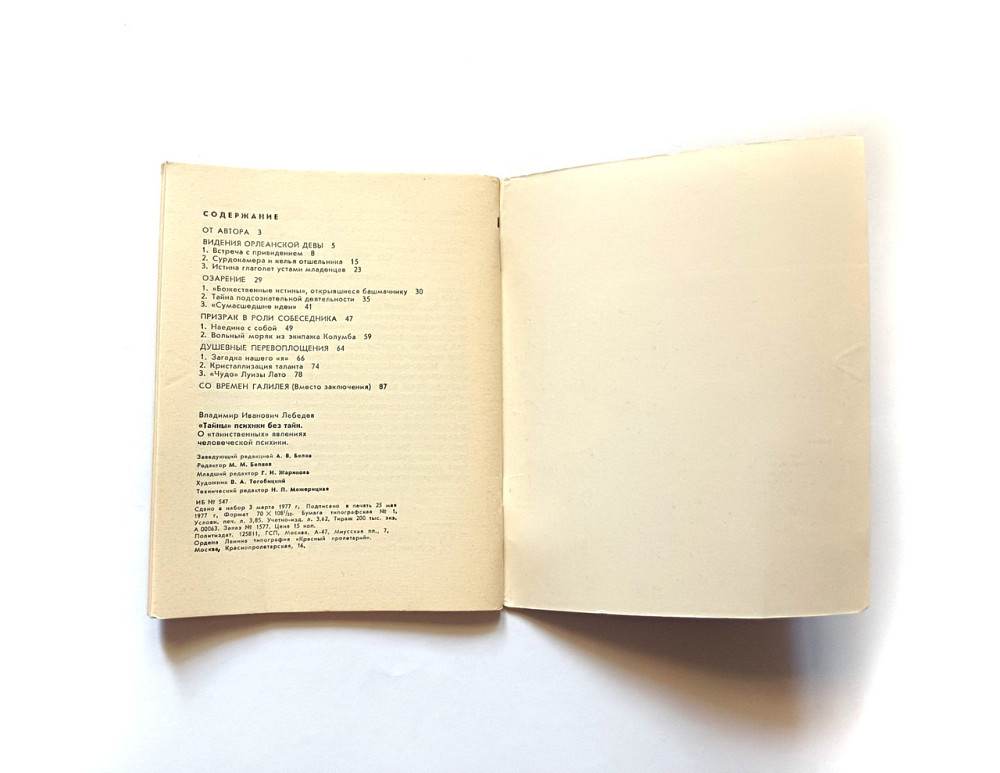 СОДЕРЖАНИЕ
ОТ АВТОРА 3
ВИДЕНИЯ ОРЛЕАНСКОЙ ДЕВЫ 5
1. Встреча с привидением 8
2. Сурдокамера и келья отшельника 15
3. Истина глаголет устами младенцев 23
ОЗАРЕНИЕ 29
1. «Божественные истины», открывшиеся башмачнику 30
2. Тайна подсознательной деятельности 35
3. «Сумасшедшие идеи» 41
ПРИЗРАК В РОЛИ СОБЕСЕДНИКА 47
1. Наедине с собой 49
2. Вольный моряк из экипажа Колумба 59
ДУШЕВНЫЕ ПЕРЕВОПЛОЩЕНИЯ 64
1. Загадка нашего «я» 66
2. Кристаллизация таланта 74
3. «Чудо» Луизы Лато 78
СО ВРЕМЕН ГАЛИЛЕЯ (Вместо заключения) 87
Владимир Иванович Лебедев
«Тайны» психики без тайн.
О «таинственных» явлениях
человеческой психики.
Заведующий редакцией А. В. Белов
Редактор М. М. Беляев
Младший редактор Г. И.
Художник В. А. Тогобицкий
Технический редактор Н. П. Межерицкая
ИБ № 547
Сдано в набор 3 марта 1977 г. Подписано в печать 25 мая
1977 г. Формат 70 × 108 1/32. Бумага типографская № 1.
Условн. печ. л. 3,85. Учетно-изд. л. 3,62. Тираж 200 тыс. экз.
А 00063. Заказ № 1577. Цена 15 коп.
Политиздат. 125811, ГСП, Москва, А-47, Миусская пл., 7.
Ордена Ленина типография «Красный пролетарий».
Москва, Краснопролетарская, 16.